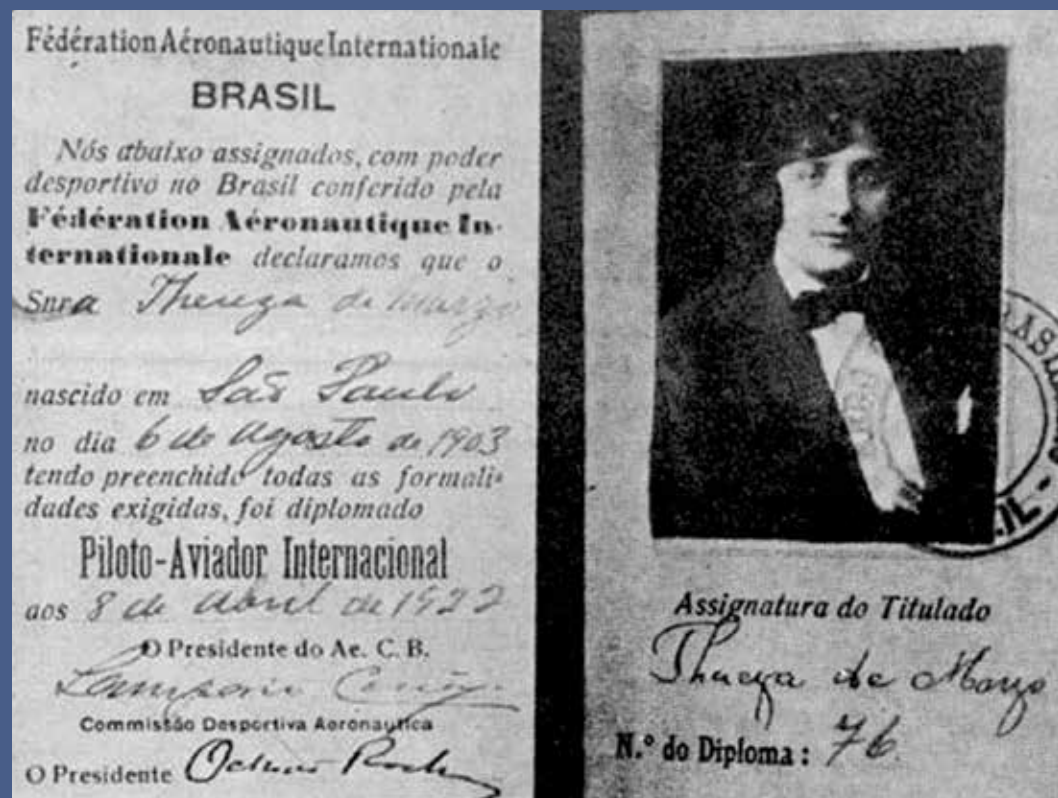 Fédération Aéronautique Internationale
BRASIL
Nós abaixo assignados, com poder
desportivo no Brasil conferido pela
Fédération Aéronautique In-
ternationale declaramos que o
Snra Thereza de Marzo
nascido em São Paulo
no dia 6 de Agosto de 1903
tendo preenchido todas as formali-
dades exigidas, foi diplomado
Piloto-Aviador Internacional
aos 8 de Abril de 1922
O Presidente do Ae. C. B.
Commissão Desportiva Aeronautica
O Presidente
Assignatura do Titulado
Thereza de Marzo
N.º do Diploma: 76